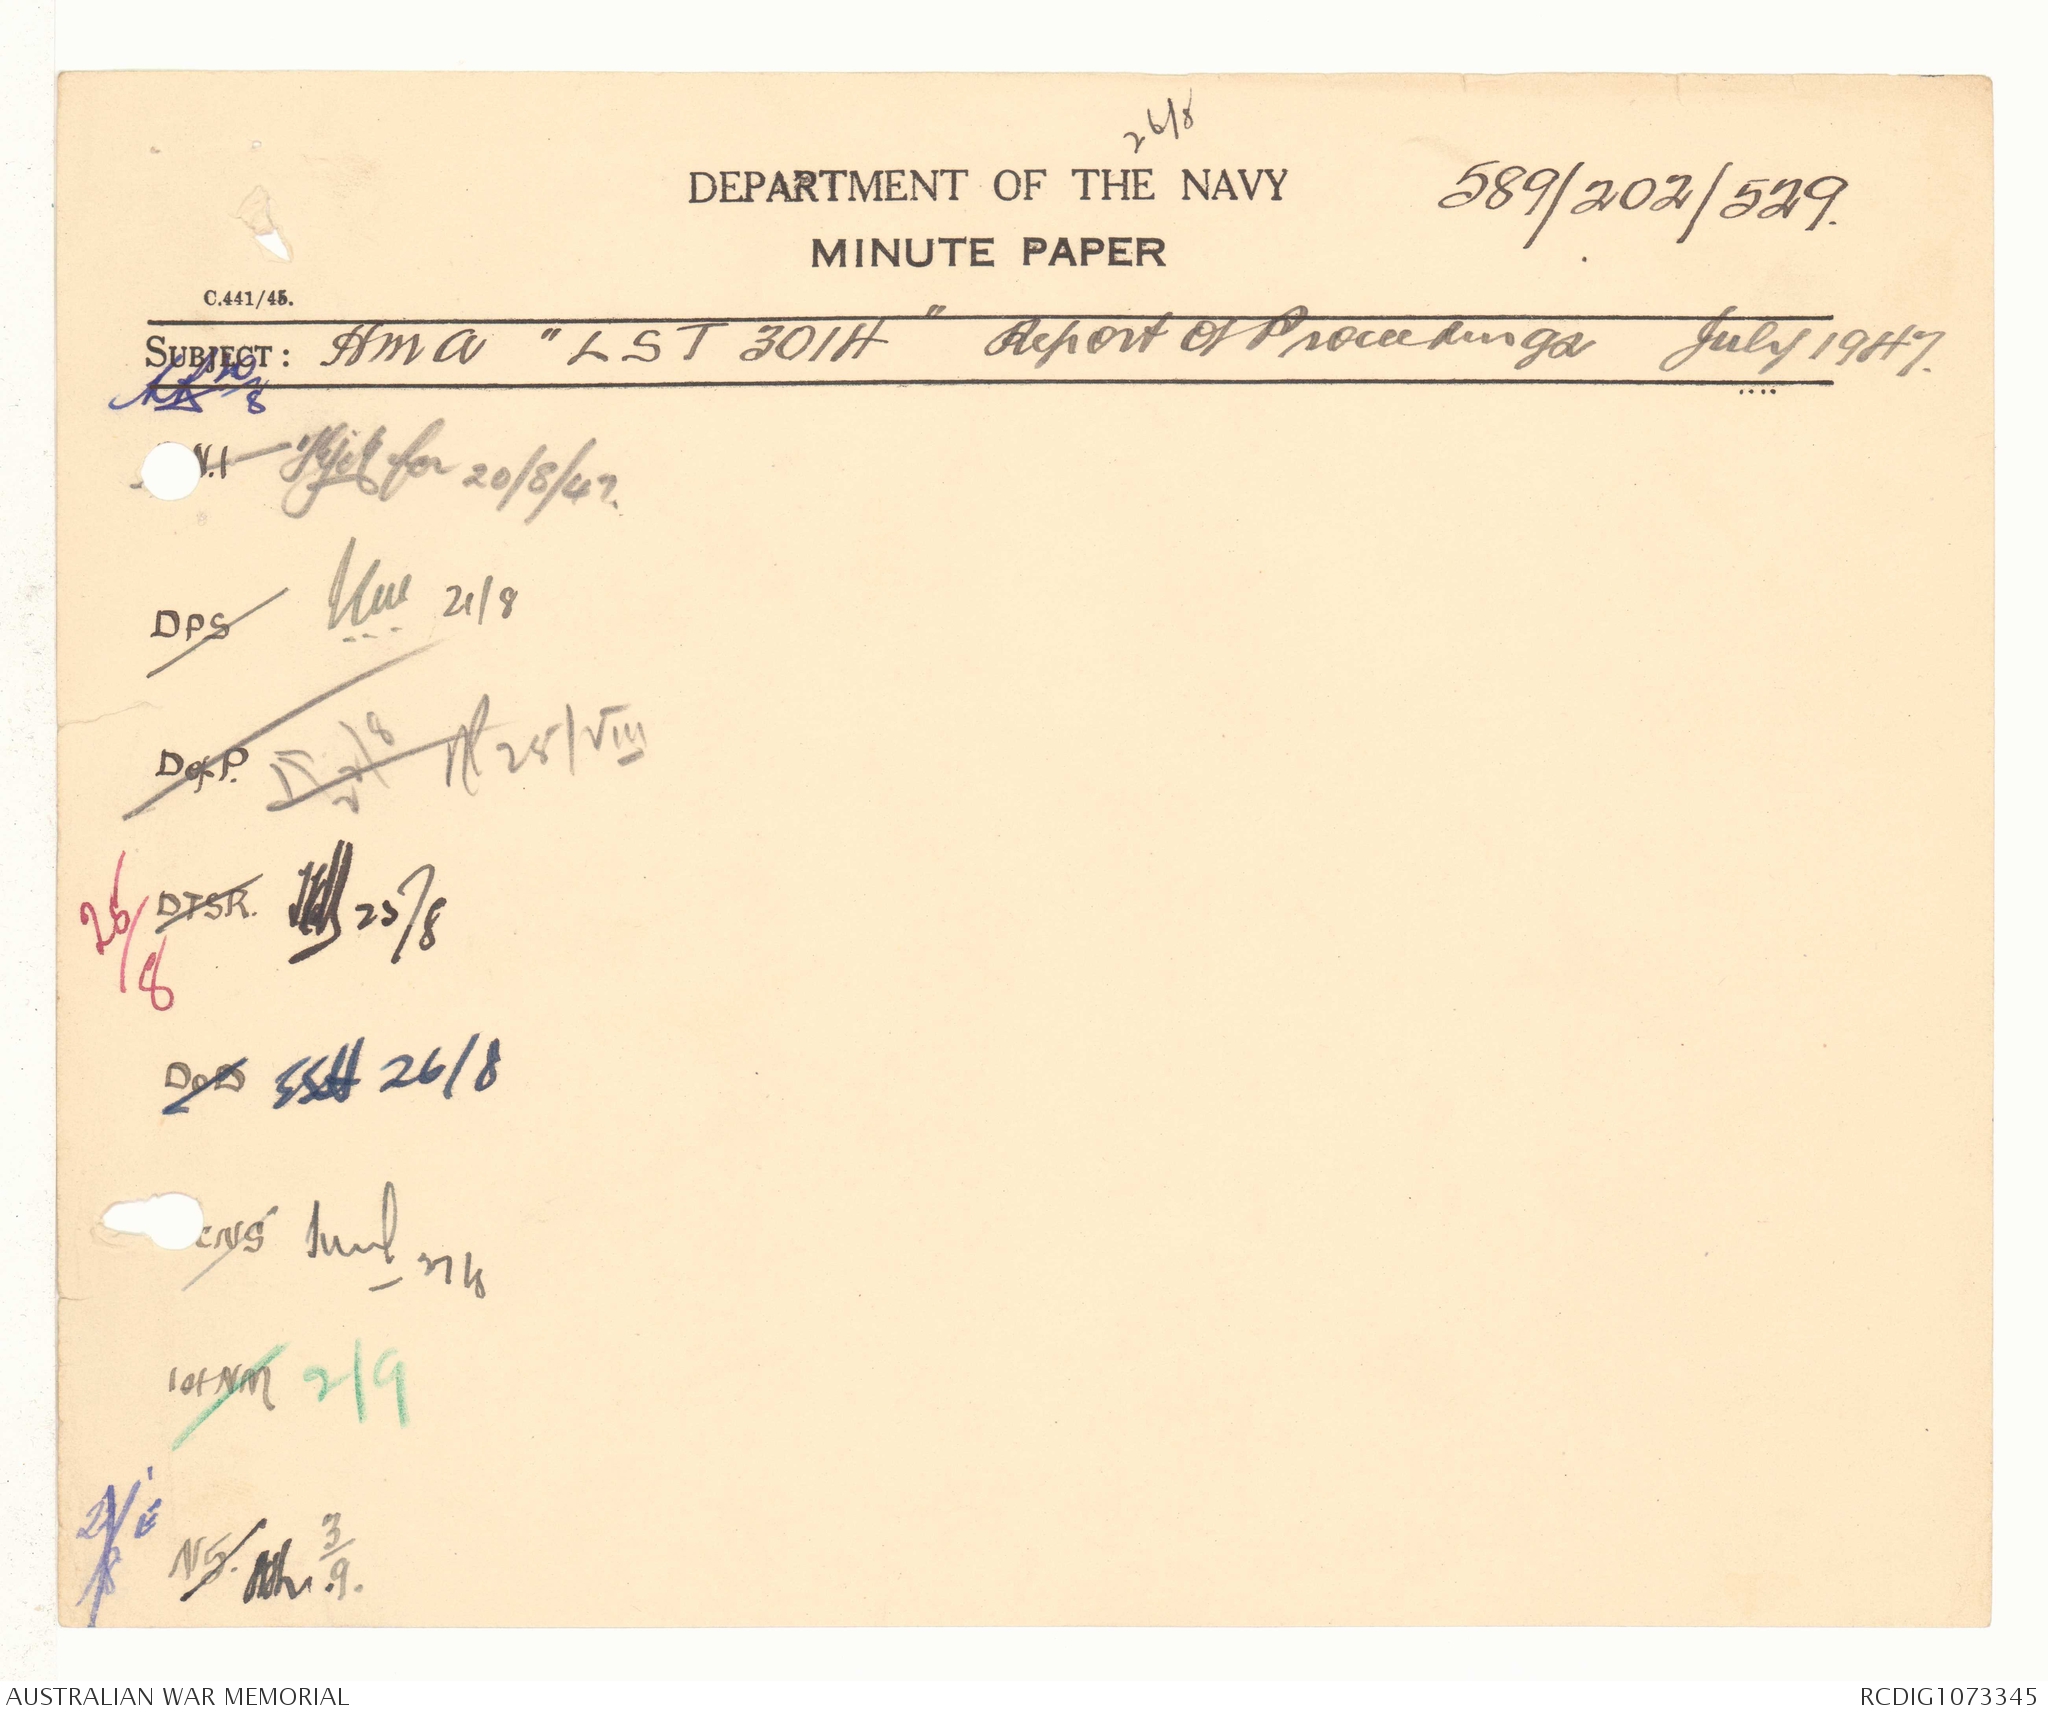 26/8
DEPARTMENT OF THE NAVY 589/202/529.
MINUTE PAPER
C.441/45.
SUBJECT: HMA "LST 3014" Report of Proceedings July 1947.
20/8
N.I for 20/8/47.
DPS 21/8
D of P. 25/VIII
26/8 DTSR. 25/8
26/8
CNS 27/8
1st NM 2/9
NS. 3/9.
AUSTRALIAN WAR MEMORIAL RCDIG1073345